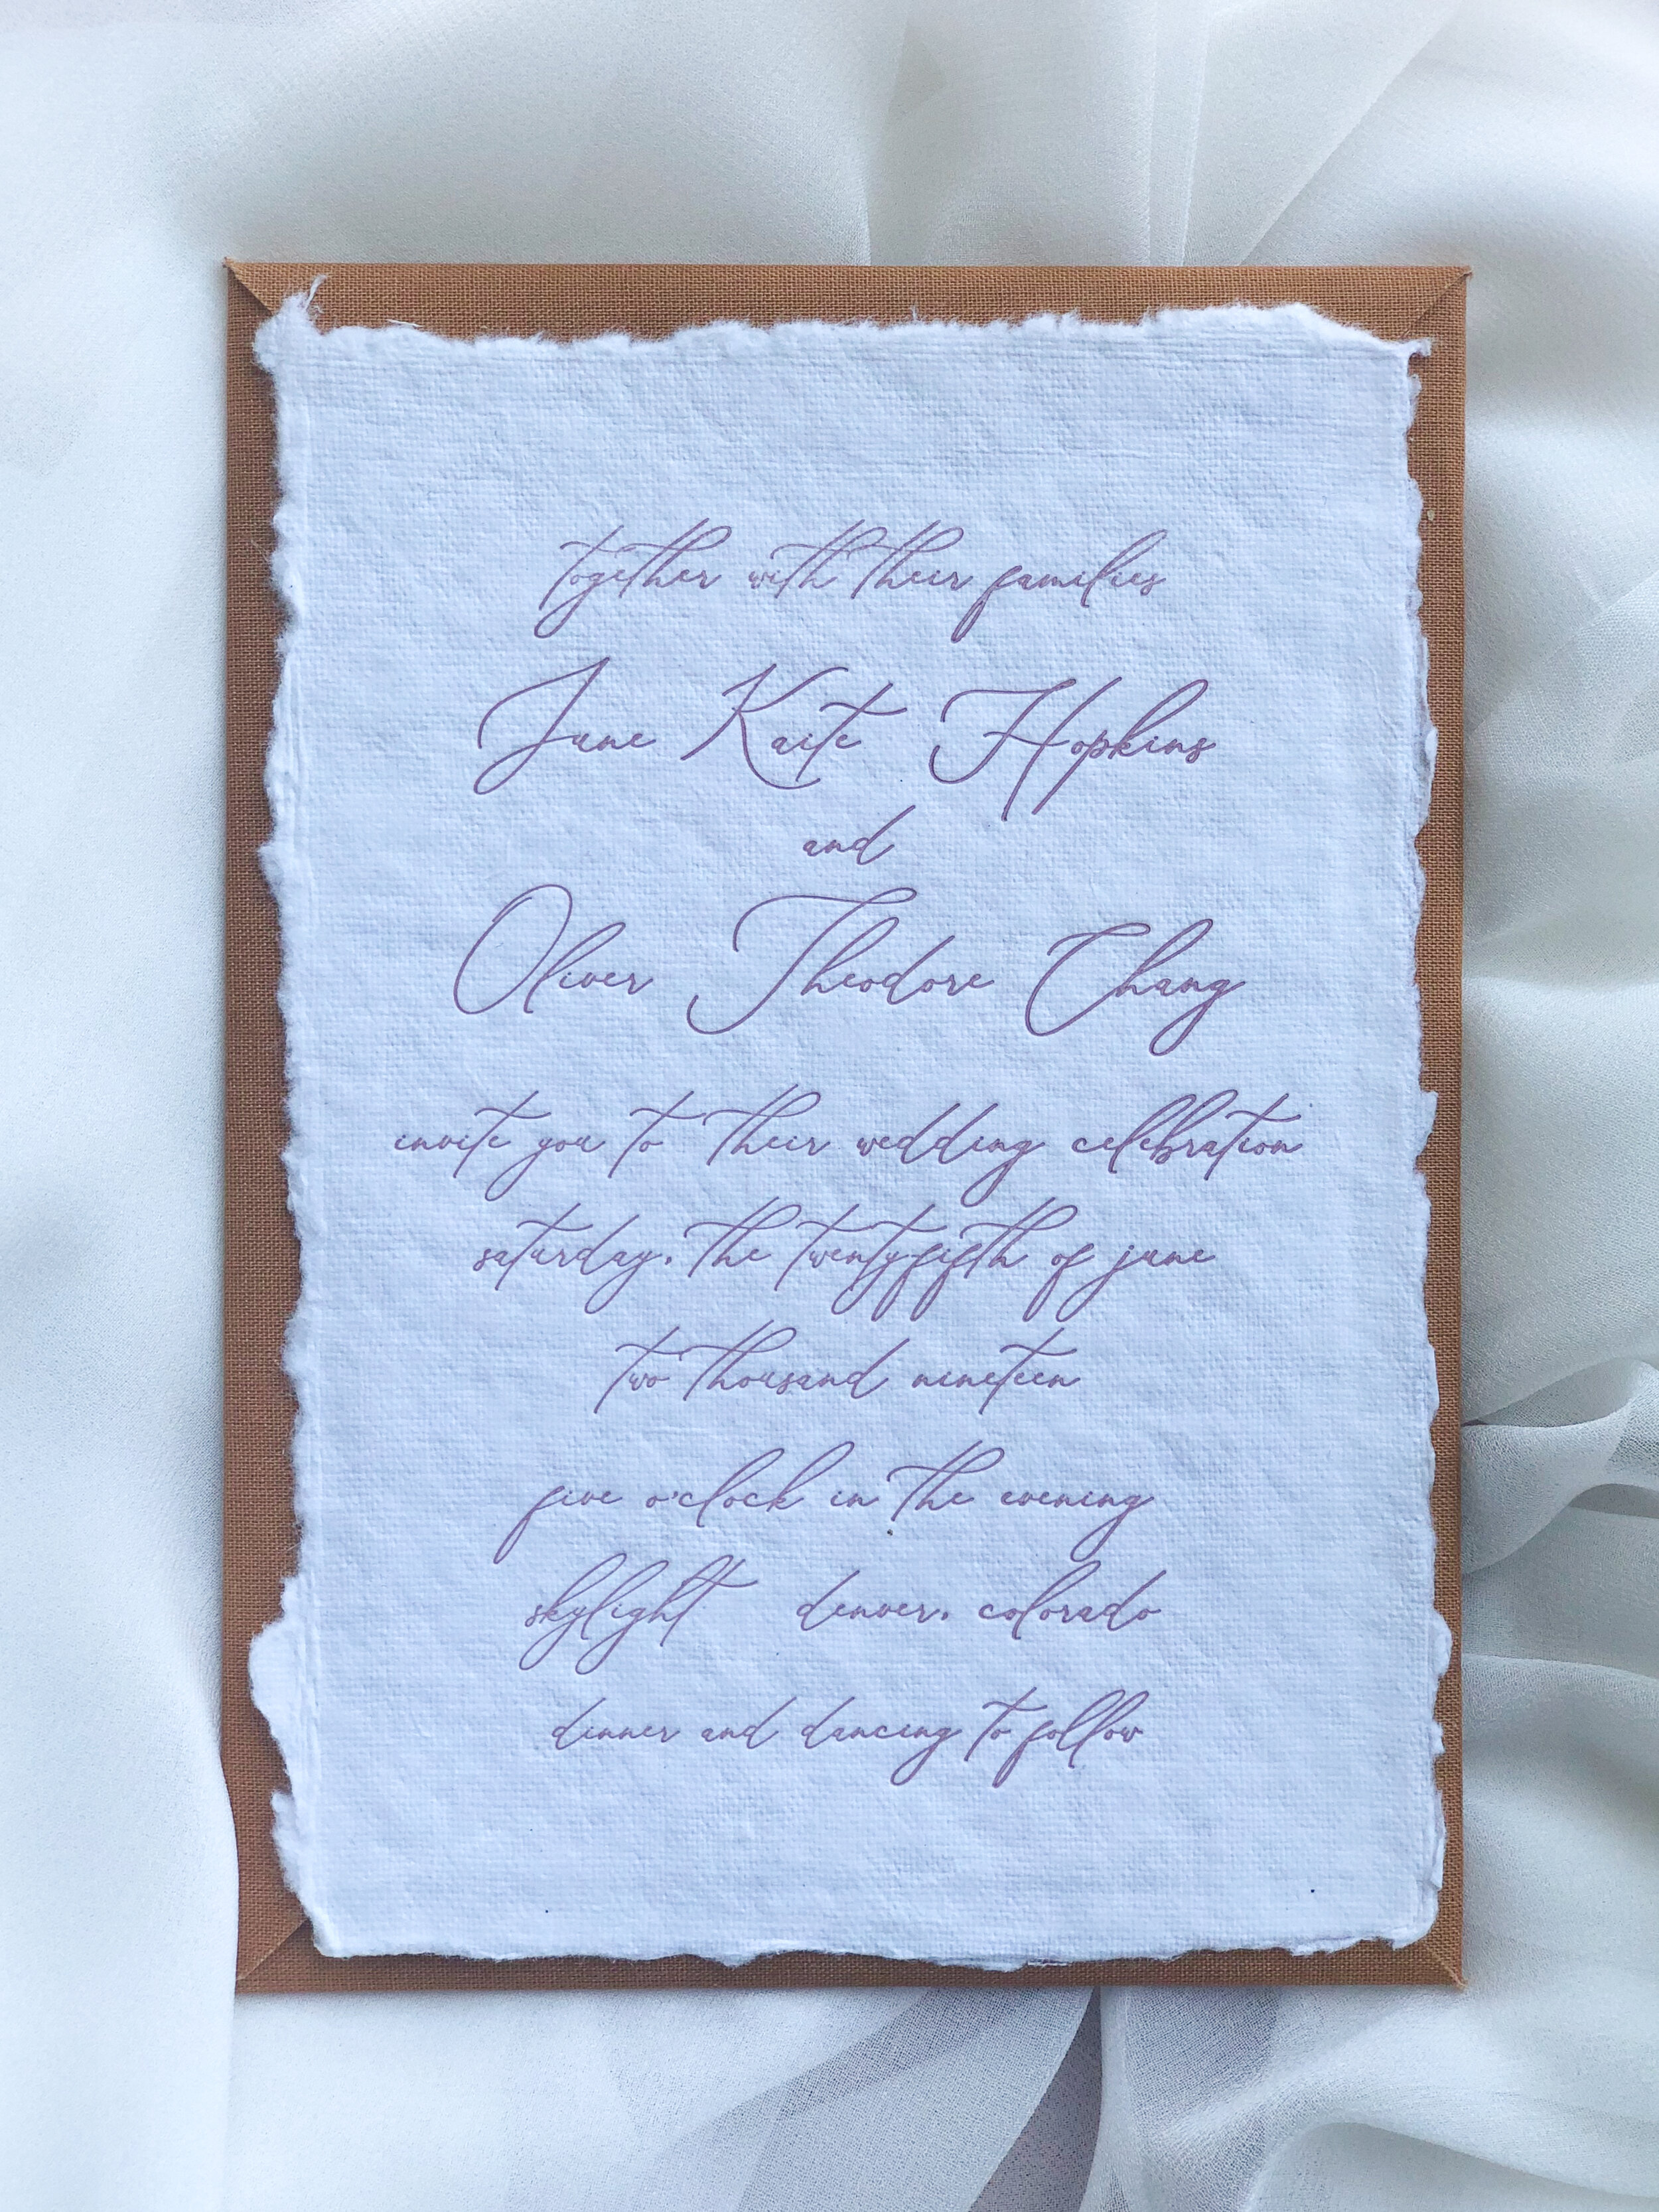 together with their families
June Kaite Hopkins
and
Oliver Theodore Chang
invite you to their wedding celebration
saturday, the twenty-fifth of june
two thousand nineteen
five o'clock in the evening
skylight denver, colorado
dinner and dancing to follow